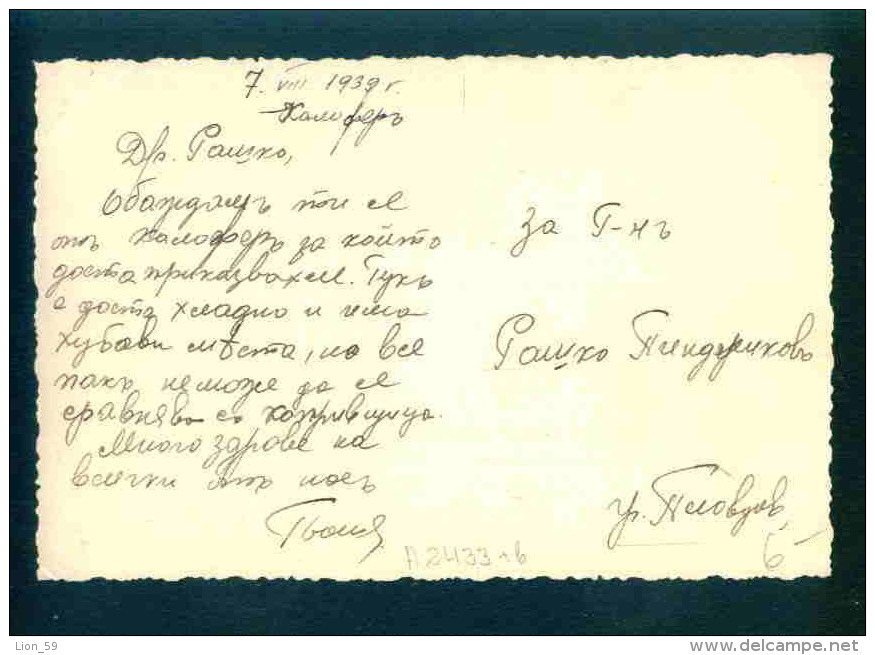 7. VIII 1939 г.
Калоферъ
Др. Рашко,
Обаждамъ ти се
отъ Калоферъ за който
доста приказвахме. Тукъ
е доста хладно и има
хубави мѣста, но все
пакъ неможе да се
сравнява съ Копривщица.
Много здраве на
всички отъ насъ
За Г-нъ
Рашко
гр. Пловдив
6-
A 2433-в
Lion_59
delcampe.net